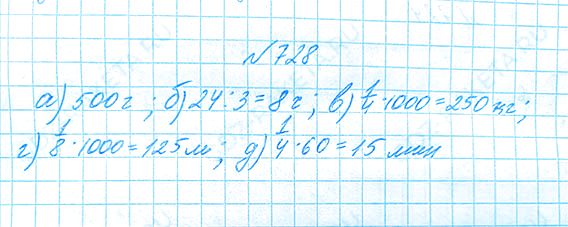 №728
а) 500 г; б) 24 : 3 = 8 ч; в) 1/4 · 1000 = 250 кг;
г) 1/8 · 1000 = 125 м; д) 1/4 · 60 = 15 мин